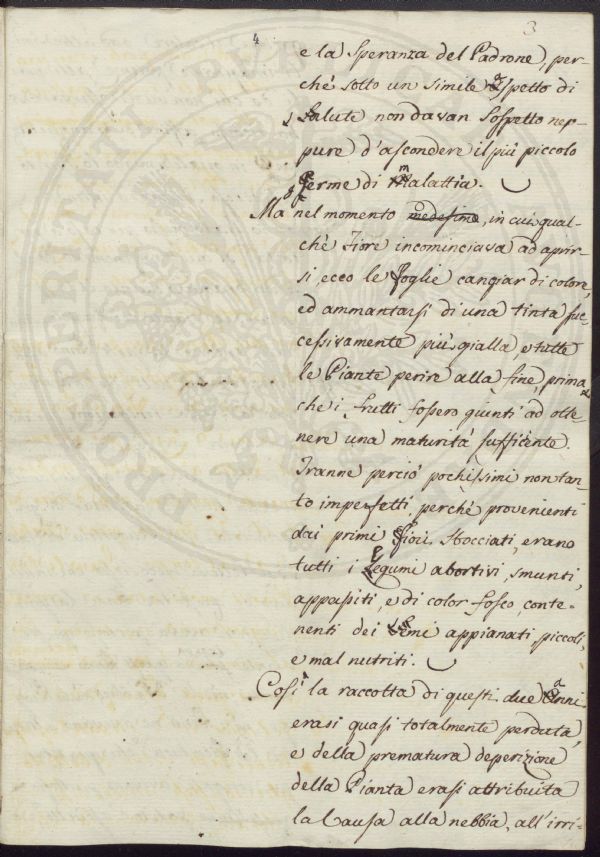 4 3
e la Speranza del Padrone, per-
chè sotto un simile aspetto di
salute non davan sospetto nep-
pure d'ascondere il più piccolo
germe di malattia.
Ma nel momento medesimo, in cui qual-
chè Fiore incominciava ad aprir-
si, ecco le foglie cangiar di colore,
ed ammantarsi di una tinta suc-
cessivamente più gialla, e tutte
le Piante perire alla fine, prima
che i frutti fossero giunti ad otte-
nere una maturità sufficente.
Tranne perciò pochissimi non tan-
to imperfetti, perchè provenienti
dai primi fiori sbocciati, erano
tutti i Legumi abortivi, smunti,
appassiti, e di color fosco, conte-
nenti dei semi appianati, piccoli,
e mal nutriti.
Così la raccolta di questi due anni
erasi quasi totalmente perduta,
e della prematura deperizione
della Pianta erasi attribuita
la Causa alla nebbia, all'irri-
PROSPERITATI PUB